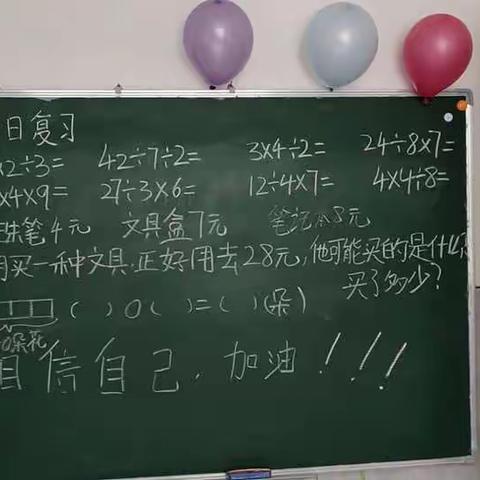 日复习
×2÷3= 42÷7÷2= 3×4÷2= 24÷8×7=
×4×9= 27÷3×6= 12÷4×7= 4×4÷8=
珠笔4元 文具盒7元 笔记本8元
买一种文具.正好用去28元,他可能买的是什么?
买了多少?
( )○( )=( )(朵)
朵花
相信自己.加油!!!